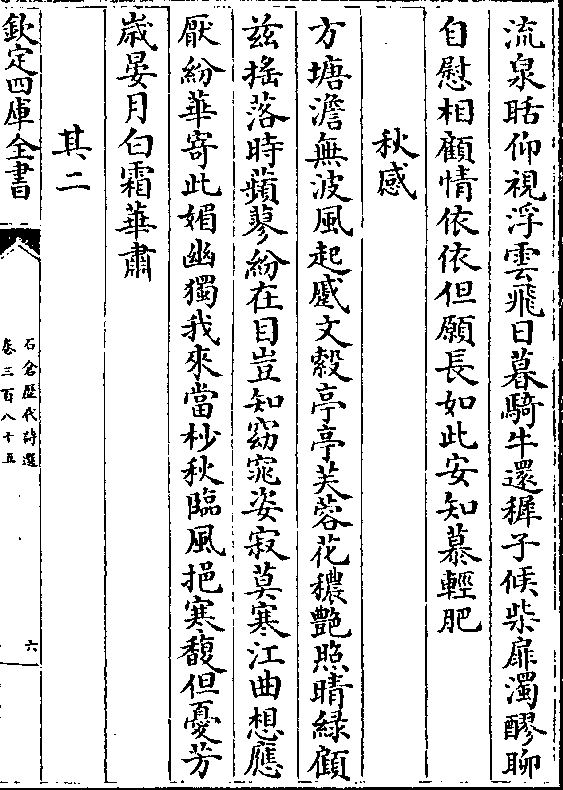 流泉聒仰視浮雲飛日暮騎牛還穉子候柴扉濁醪聊
自慰相顧情依依但願長如此安知慕輕肥
秋感
方塘澹無波風起蹙文縠亭亭芙蓉花穠艷照晴緑顧
兹揺落時蘋蓼紛在目豈知窈窕姿寂莫寒江曲想應
厭紛華寄此媚幽獨我來當杪秋臨風挹寒馥但憂芳
歳晏月白霜華肅
其二
欽定四庫全書
石倉歴代詩選
卷三百八十五
六